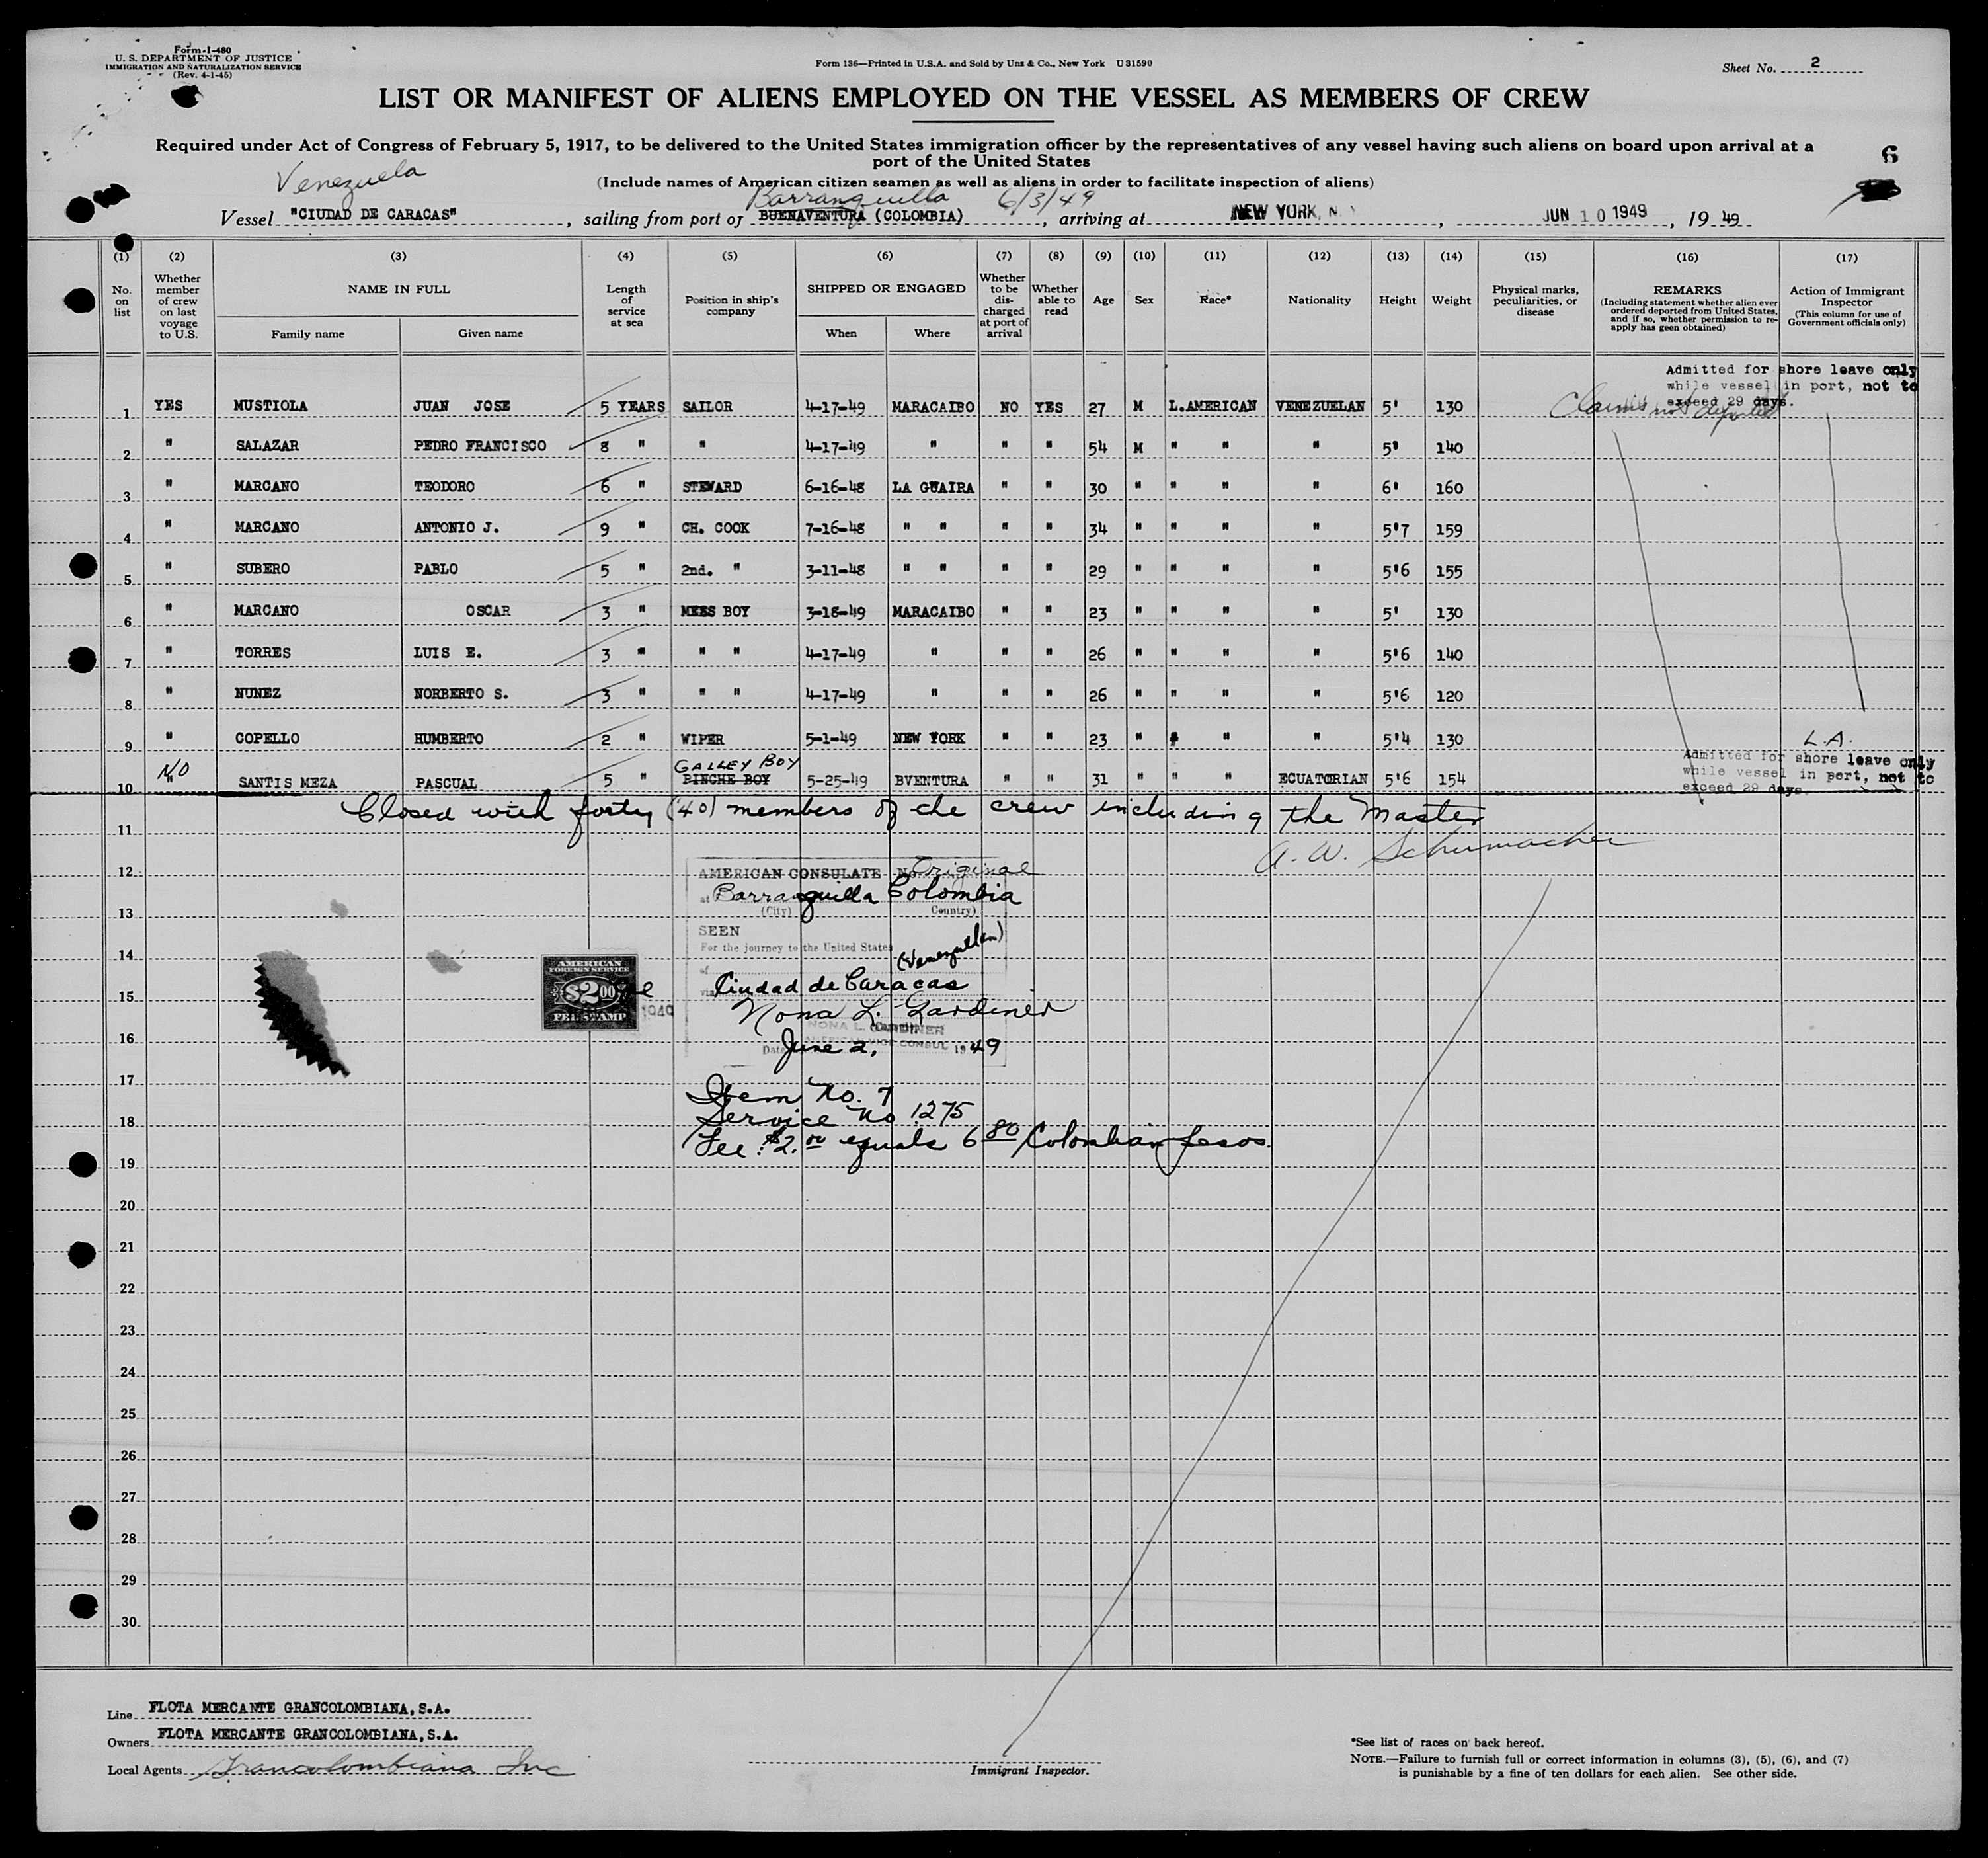 Form I-480
U. S. DEPARTMENT OF JUSTICE
IMMIGRATION AND NATURALIZATION SERVICE
(Rev. 4-1-45)
Form 136—Printed in U.S.A. and Sold by Unz & Co., New York U 31590
Sheet No. 2
LIST OR MANIFEST OF ALIENS EMPLOYED ON THE VESSEL AS MEMBERS OF CREW
Required under Act of Congress of February 5, 1917, to be delivered to the United States immigration officer by the representatives of any vessel having such aliens on board upon arrival at a
port of the United States
6
(Include names of American citizen seamen as well as aliens in order to facilitate inspection of aliens)
Venezuela
Barranquilla 6/3/49
Vessel "CIUDAD DE CARACAS", sailing from port of BUENAVENTURA (COLOMBIA), arriving at NEW YORK, N. Y, JUN 10 1949, 19 49
(1) (2) (3) (4) (5) (6) (7) (8) (9) (10) (11) (12) (13) (14) (15) (16) (17)
No. on list
Whether member of crew on last voyage to U.S.
NAME IN FULL
Family name
Given name
Length of service at sea
Position in ship's company
SHIPPED OR ENGAGED
When
Where
Whether to be discharged at port of arrival
Whether able to read
Age
Sex
Race*
Nationality
Height
Weight
Physical marks, peculiarities, or disease
REMARKS
(Including statement whether alien ever ordered deported from United States, and if so, whether permission to re-apply has geen obtained)
Action of Immigrant Inspector
(This column for use of Government officials only)
Admitted for shore leave only
while vessel in port, not to
exceed 29 days.
1 YES MUSTIOLA JUAN JOSE 5 YEARS SAILOR 4-17-49 MARACAIBO NO YES 27 M L.AMERICAN VENEZUELAN 5' 130 Claims not deported
2 " SALAZAR PEDRO FRANCISCO 8 " " 4-17-49 " " " 54 M " " " 5' 140
3 " MARCANO TEODORO 6 " STEWARD 6-16-48 LA GUAIRA " " 30 " " " " 6' 160
4 " MARCANO ANTONIO J. 9 " CH. COOK 7-16-48 " " " " 34 " " " " 5'7 159
5 " SUBERO PABLO 5 " 2nd. " 3-11-48 " " " " 29 " " " " 5'6 155
6 " MARCANO OSCAR 3 " MESS BOY 3-18-49 MARACAIBO " " 23 " " " " 5' 130
7 " TORRES LUIS E. 3 " " " 4-17-49 " " " 26 " " " " 5'6 140
8 " NUNEZ NORBERTO S. 3 " " " 4-17-49 " " " 26 " " " " 5'6 120
9 " COPELLO HUMBERTO 2 " WIPER 5-1-49 NEW YORK " " 23 " " " " 5'4 130 L.A.
GALLEY BOY
10 NO SANTIS MEZA PASCUAL 5 " PINCHE BOY 5-25-49 BVENTURA " " 31 " " " ECUATORIAN 5'6 154
Admitted for shore leave only
while vessel in port, not to
exceed 29 days
Closed with forty (40) members of the crew including the Master
11
A. W. Schumacher
12
AMERICAN CONSULATE No. Original
at Barranquilla Colombia
(City) Country)
13
SEEN
For the journey to the United States
14
of (Venezuelan)
via Ciudad de Caracas
AMERICAN
FOREIGN SERVICE
$2.00
FEE STAMP
1949
15
Nona L. Gardiner
NONA L. GARDINER
AMERICAN VICE CONSUL
16
Date June 2, 1949
17
Item No. 7
Service No 1275
18
Fee $2.00 equals 6 80 Colombian pesos.
19
20
21
22
23
24
25
26
27
28
29
30
Line FLOTA MERCANTE GRANCOLOMBIANA, S.A.
Owners FLOTA MERCANTE GRANCOLOMBIANA, S.A.
Local Agents Grancolombiana Inc
Immigrant Inspector.
*See list of races on back hereof.
NOTE.—Failure to furnish full or correct information in columns (3), (5), (6), and (7)
is punishable by a fine of ten dollars for each alien. See other side.